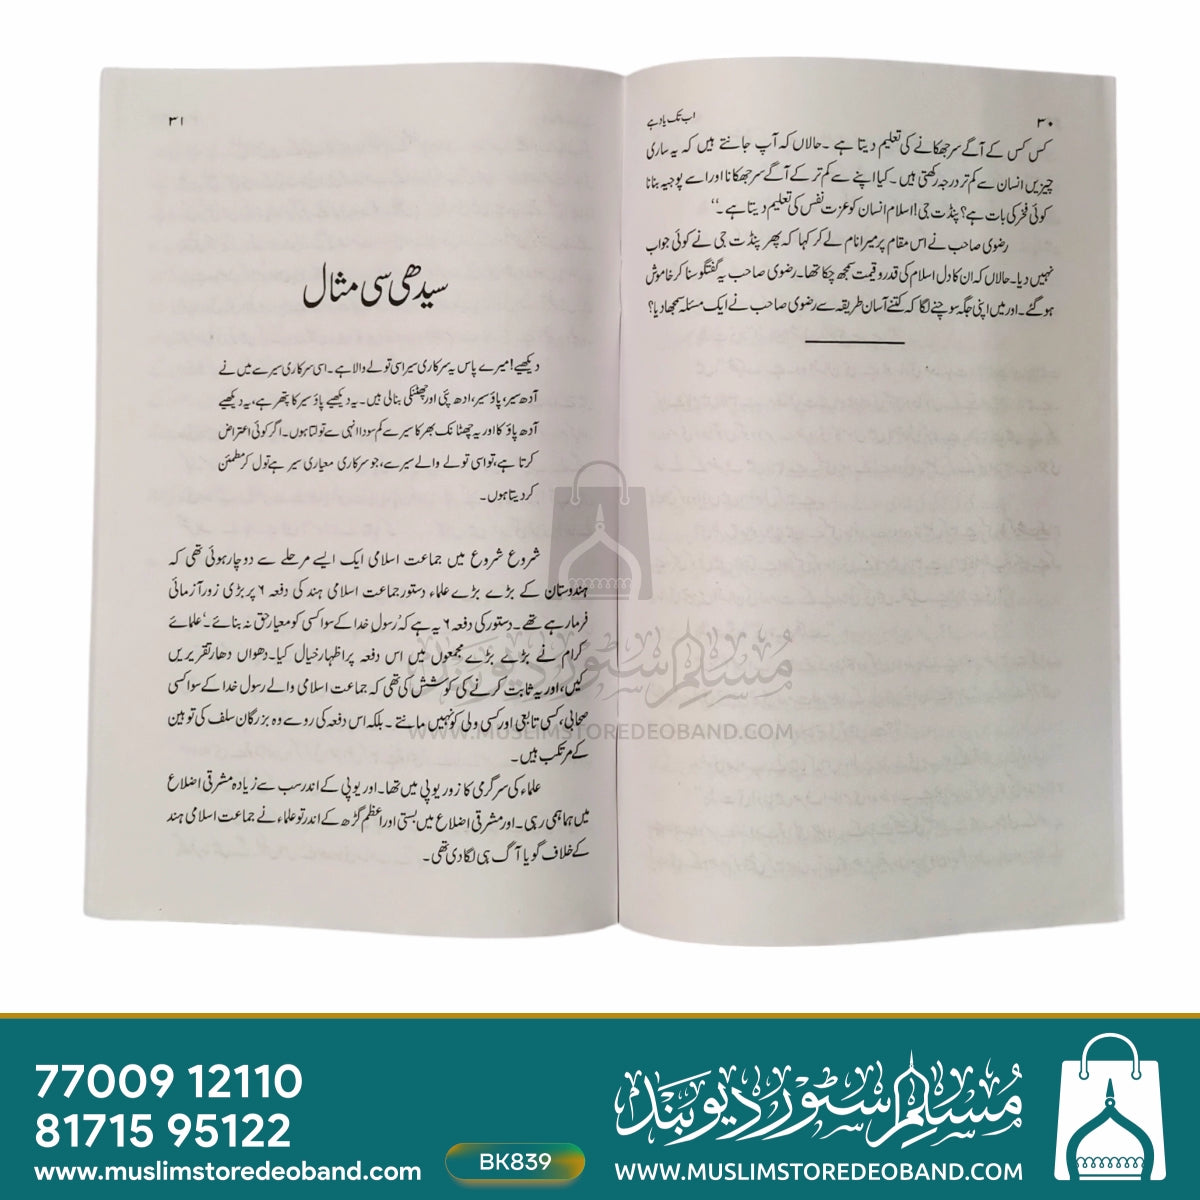 ۳۰
اب تک یاد ہے
کس کس کے آگے سر جھکانے کی تعلیم دیتا ہے ۔ حالاں کہ آپ جانتے ہیں کہ یہ ساری
چیزیں انسان سے کم تر درجہ رکھتی ہیں ۔ کیا اپنے سے کم تر کے آگے سر جھکانا اور اسے پوجیہ بنانا
کوئی فخر کی بات ہے؟ پنڈت جی! اسلام انسان کو عزت نفس کی تعلیم دیتا ہے ۔‘‘
رضوی صاحب نے اس مقام پر میرا نام لے کر کہا کہ پھر پنڈت جی نے کوئی جواب
نہیں دیا۔ حالاں کہ ان کا دل اسلام کی قدر و قیمت سمجھ چکا تھا۔ رضوی صاحب یہ گفتگو سنا کر خاموش
ہو گئے ۔ اور میں اپنی جگہ سوچنے لگا کہ کتنے آسان طریقہ سے رضوی صاحب نے ایک مسئلہ سمجھا دیا؟
۳۱
سیدھی سی مثال
دیکھیے! میرے پاس یہ سرکاری سیر اسی تولے والا ہے ۔ اسی سرکاری سیر سے میں نے
آدھ سیر، پاؤ سیر، ادھ پئی اور چھٹنکی بنالی ہیں ۔ یہ دیکھیے پاؤ سیر کا پتھر ہے، یہ دیکھیے
آدھ پاؤ کا اور یہ چھٹانک بھر کا سیر سے کم سودا انہی سے تولتا ہوں ۔ اگر کوئی اعتراض
کرتا ہے، تو اسی تولے والے سیر سے، جو سرکاری معیاری سیر ہے تول کر مطمئن
کر دیتا ہوں ۔
شروع شروع میں جماعت اسلامی ایک ایسے مرحلے سے دوچار ہوئی تھی کہ
ہندوستان کے بڑے بڑے علماء دستور جماعت اسلامی ہند کی دفعہ ۶ پر بڑی زور آزمائی
فرما رہے تھے ۔ دستور کی دفعہ ۶ یہ ہے کہ ’رسولِ خدا کے سوا کسی کو معیارِ حق نہ بنائے‘۔ علمائے
کرام نے بڑے بڑے مجمعوں میں اس دفعہ پر اظہار خیال کیا۔ دھواں دھار تقریریں
کیں، اور یہ ثابت کرنے کی کوشش کی تھی کہ جماعت اسلامی والے رسول خدا کے سوا کسی
صحابی، کسی تابعی اور کسی ولی کو نہیں مانتے ۔ بلکہ اس دفعہ کی رو سے وہ بزرگان سلف کی توہین
کے مرتکب ہیں ۔
علماء کی سرگرمی کا زور یوپی میں تھا۔ اور یوپی کے اندر سب سے زیادہ مشرقی اضلاع
میں ہماہمی رہی ۔ اور مشرقی اضلاع میں بستی اور اعظم گڑھ کے اندر تو علماء نے جماعت اسلامی ہند
کے خلاف گویا آگ ہی لگا دی تھی ۔
مسلم سٹور دیوبند
WWW.MUSLIMSTOREDEOBAND.COM
77009 12110
81715 95122
www.muslimstoredeoband.com
BK839
مسلم سٹور دیوبند
WWW.MUSLIMSTOREDEOBAND.COM